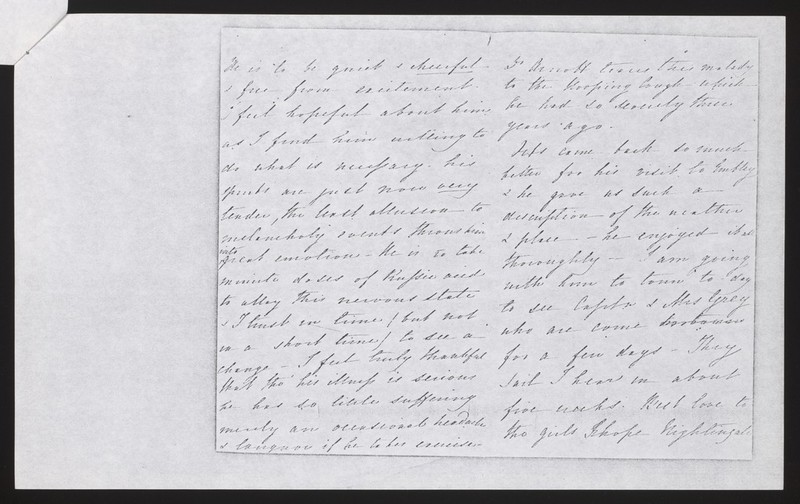 He is to be quiet & cheerful
& free from excitement.
I feel hopeful about him
as I find him willing to
do what is necessary. his
spirits are just now very
tender, the least allusion to
melancholy events throws him
into
great emotion - He is to take
minute doses of Prussic acid
to allay this nervous state
& I trust in time (but not
in a short time) to see a
change - I feel truly thankful
that tho' his illness is serious
he has so little suffering
merely an occasional headache
& languor if he takes exercise
Dr Arnott traces this malady
to the Hooping Cough which
he had so severely three
years ago.
come back so much
better for his visit to Embley
& he gave us such a
description of the weather
& place - he enjoyed it all
thoroughly - I am going
with him to town to day
to see Captn & Mrs Grey
who are come
for a few days - They
sail I hear in about
five weeks. Best love to
the girls I hope Nightingale